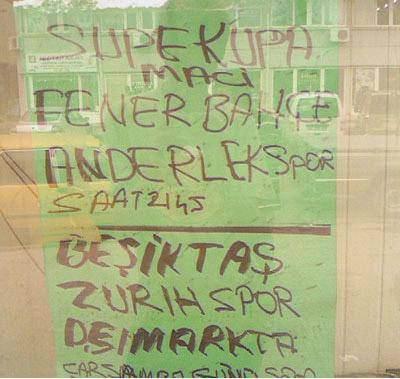 SUPEKUPA
MACI
FENERBAHCE
ANDERLEKSPOR
SAAT 21 45
BEŞİKTAŞ
ZURIHSPOR
DEŞİMARKTA
ÇARŞAMBA GÜNÜ